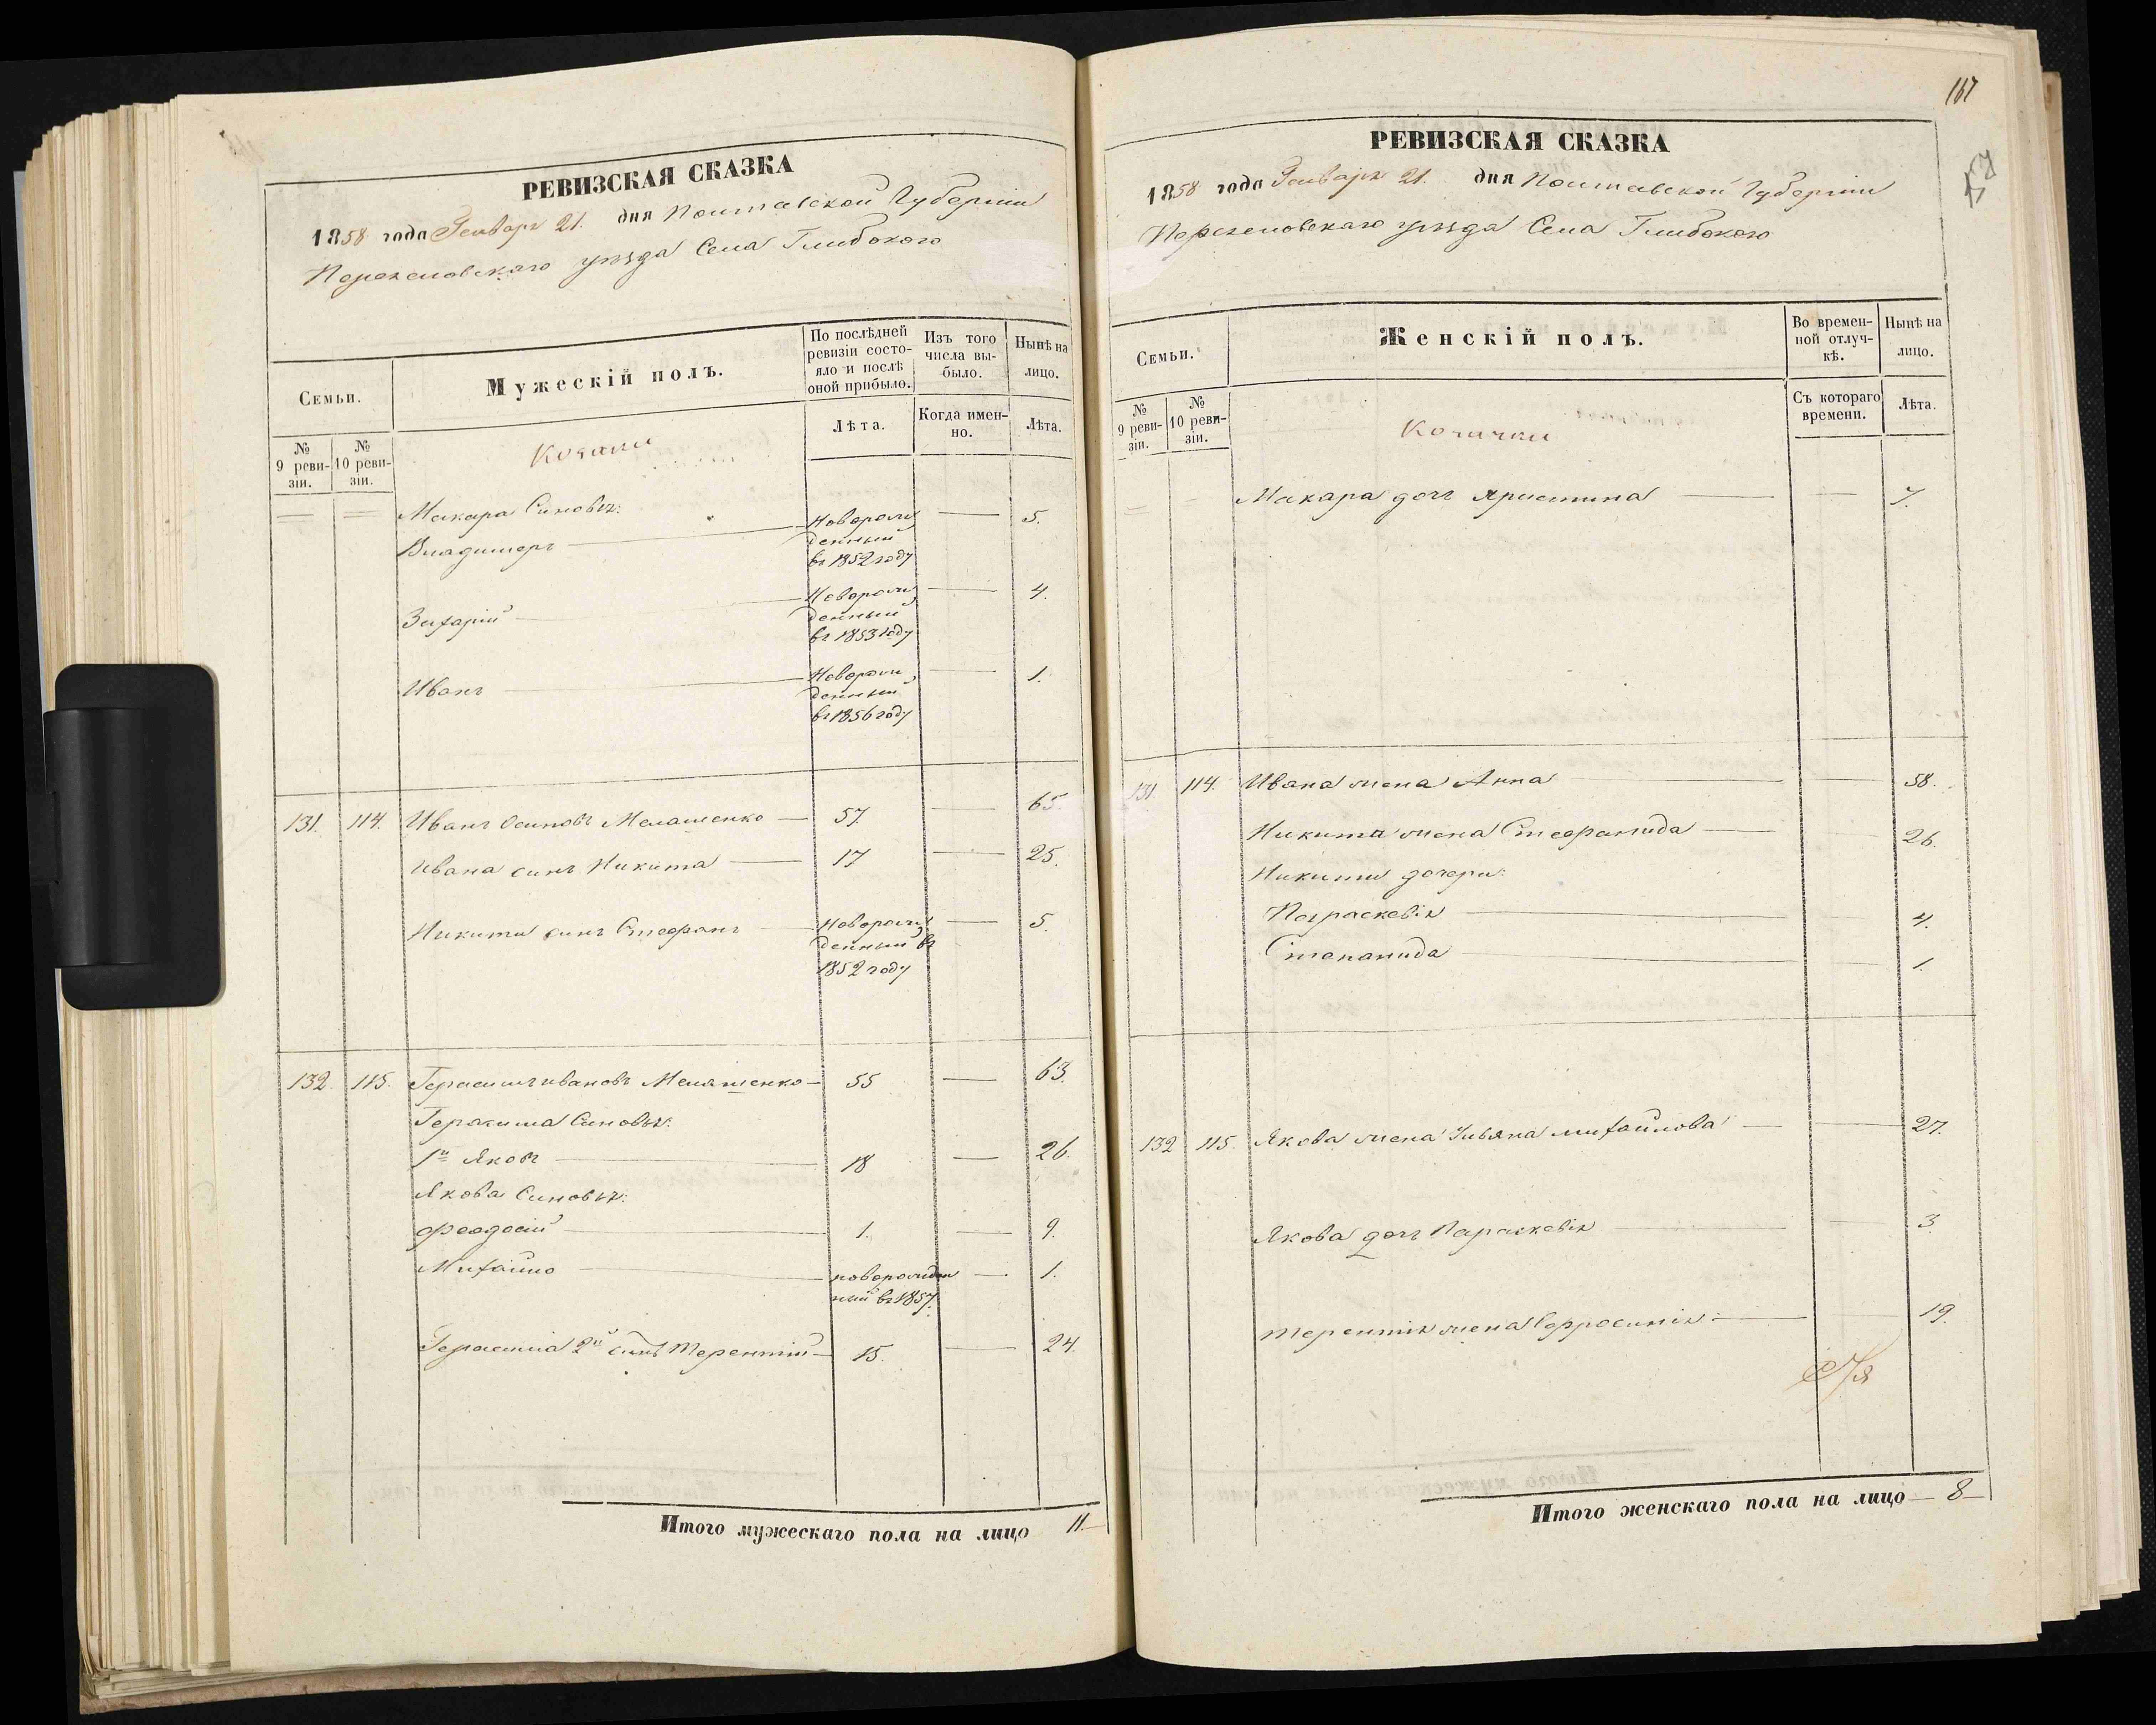 РЕВИЗСКАЯ СКАЗКА
1858 года Генваря 21. дня Полтавской Губерніи
Переяславскаго уезда Села Глибокого
Семьи.
Мужескій полъ.
По послѣдней ревизіи состояло и послѣ оной прибыло.
Изъ того числа выбыло.
Нынѣ на лицо.
№ 9 ревизіи.
№ 10 ревизіи.
Козаки
Лѣта.
Когда именно.
Лѣта.
Макара Синовья:
Владимеръ — Новорожденный въ 1852 году — 5.
Захарій — Новорожденный въ 1853 году — 4.
Иванъ — Новорожденный въ 1856 году — 1.
131. 114. Иванъ Осиповъ Мелашенко — 57. — 65.
Ивана синъ Никита — 17 — 25.
Никиты синъ Стефанъ — Новорожденный въ 1852 году — 5.
132. 115. Герасимъ Ивановъ Мелашенко — 55 — 63.
Герасима Синовья:
1й Яковъ — 18 — 26.
Якова Синовья:
Феодосій — 1. — 9.
Михайло — новорожденный въ 1857. — 1.
Герасима 2й синъ Терентій — 15. — 24.
Итого мужескаго пола на лицо 11.—
167
РЕВИЗСКАЯ СКАЗКА
1858 года Генваря 21. дня Полтавской Губерніи
Переяславскаго уезда Села Глибокого
Семьи.
Женскій полъ.
Во временной отлучкѣ.
Нынѣ на лицо.
№ 9 ревизіи.
№ 10 ревизіи.
Козачки
Съ котораго времени.
Лѣта.
Макара дочь Христина — — 7.
131 114. Ивана жена Анна — — 58.
Никита жена Стефанида — — 26.
Никиты дочери:
Параскевія — 4.
Степанида — — 1.
132 115. Якова жена Ульяна Михайлова — — 27.
Якова дочь Параскевія — — 3
Терентія жена Евфросинія — — 19.
Итого женскаго пола на лицо — 8—